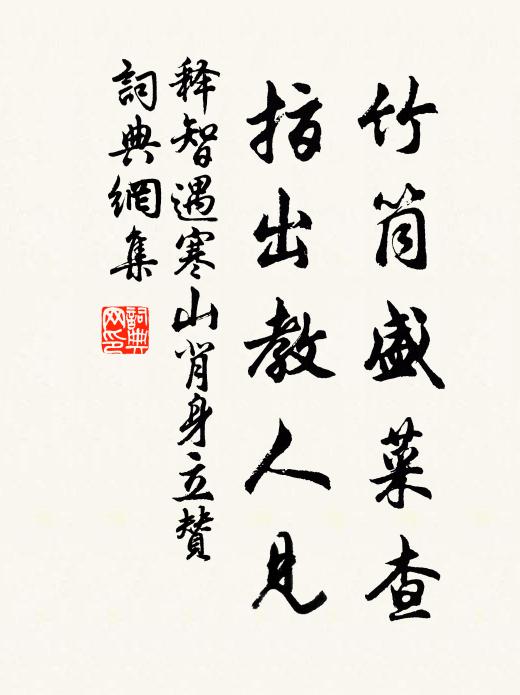 竹筒盛菜查
指出教人見
释智遇寒山肖身立贊
詞典網集
詞典网印